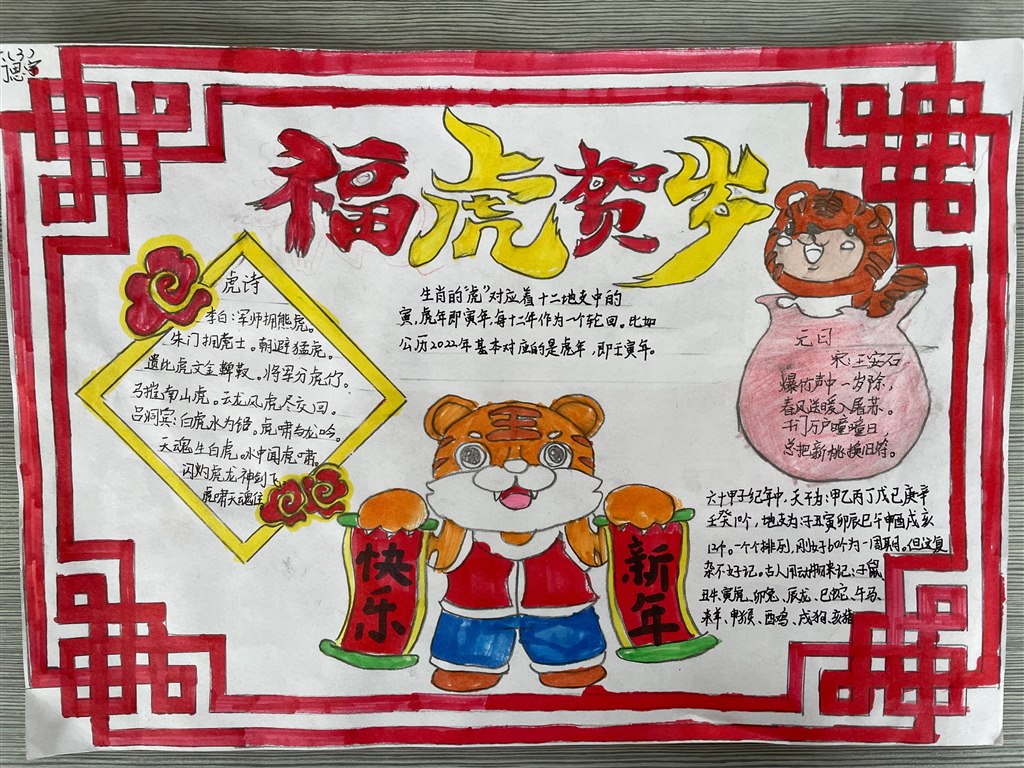 福虎贺岁
虎诗
李白:军师拥熊虎。
朱门拥虎士。朝避猛虎。
遗比虎文金鞞靫。将军分虎竹。
弓摧南山虎。云龙风虎尽交回。
吕洞宾:白虎水为铅。虎啸与龙吟。
天魂生白虎。水中闻虎啸。
闪灼虎龙神剑飞
虎啸天魂住
生肖的“虎”对应着十二地支中的
寅,虎年即寅年,每十二年作为一个轮回。比如
公历2022年基本对应的是虎年,即壬寅年。
元日
宋:王安石
爆竹声中一岁除,
春风送暖入屠苏。
千门万户曈曈日,
总把新桃换旧符。
六十甲子纪年中,天干为:甲乙丙丁戊己庚辛
壬癸10个,地支为:子丑寅卯辰巳午申酉戌亥
12个。一个个排列,刚好60个为一周期。但这复
杂不好记。古人用动物来记:子鼠
丑牛、寅虎、卯兔、辰龙、巳蛇、午马、
未羊、申猴、酉鸡、戌狗、亥猪
王
快乐
新年